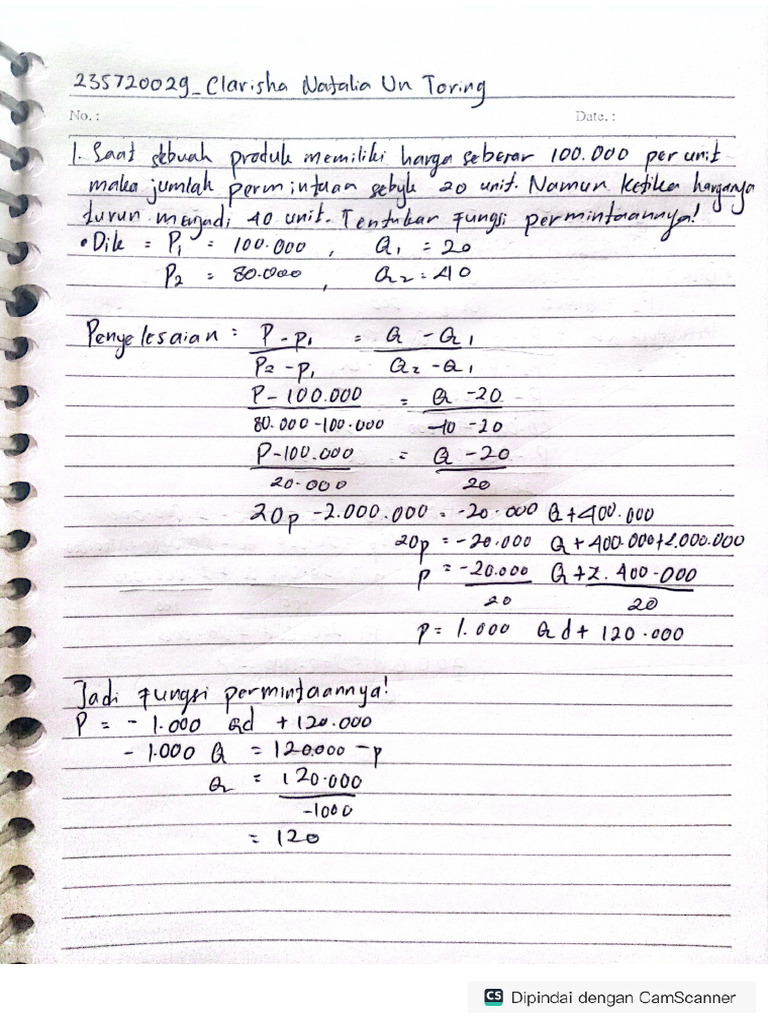 235720029_Clarisha Natalia Un Toring
No. : Date. :
1. Saat sebuah produk memiliki harga sebesar 100.000 per unit
maka jumlah permintaan sebyk 20 unit. Namun ketika harganya
turun menjadi 40 unit. Tentukar fungsi permintaannya!
• Dik = P1 = 100.000 , Q1 = 20
P2 = 80.000 , Q2 = 40
Penyelesaian : P - P1 = Q - Q1
P2 - P1 Q2 - Q1
P - 100.000 = Q - 20
80.000 - 100.000 40 - 20
P - 100.000 = Q - 20
20.000 20
20p - 2.000.000 = -20.000 Q + 400.000
20p = -20.000 Q + 400.000 + 2.000.000
p = -20.000 Q + 2.400.000
20 20
p = 1.000 Qd + 120.000
Jadi fungsi permintaannya!
P = - 1.000 Qd + 120.000
- 1.000 Q = 120.000 - p
Q = 120.000
-1000
= 120
CS Dipindai dengan CamScanner